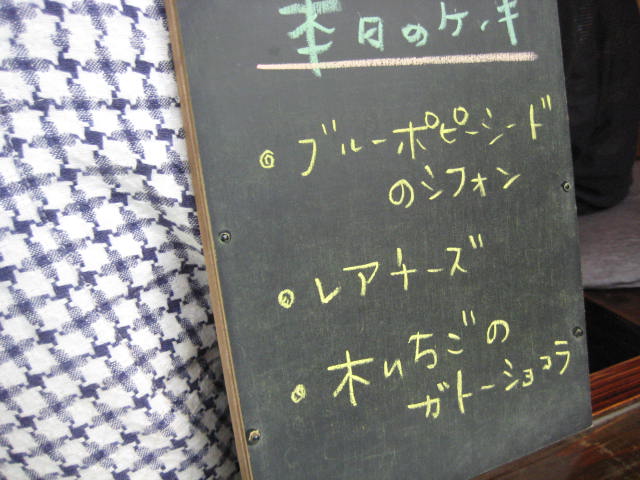 本日のケーキ
・ブルーポピーシード
のシフォン
・レアチーズ
・木いちごの
ガトーショコラ